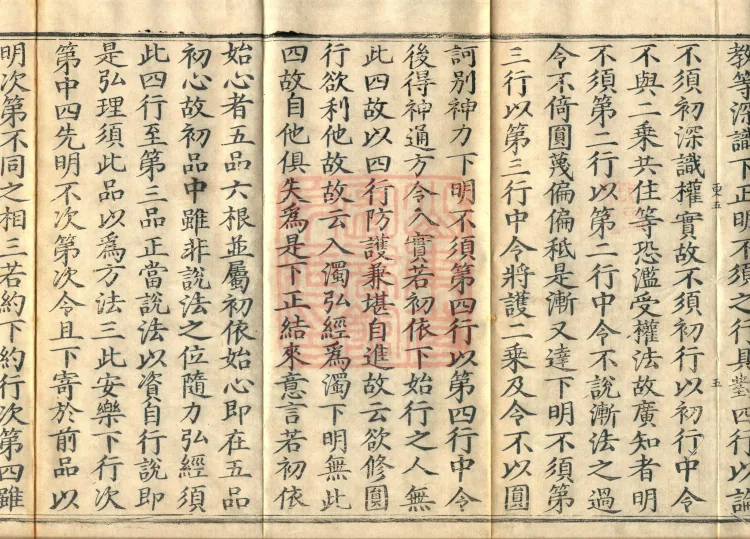 教等深識下正明不須之行具對四以論
不須初深識權實故不須初行以初行中令
不與二乘共住等恐濫受權法故廣知者明
不須第二行以第二行中令不說漸法之過
令不倚圓蔑偏偏秖是漸又達下明不須第
三行以第三行中令將護二乘及令不以圓
訶別神力下明不須第四行以第四行中令
後得神通方令入實若初依下始行之人無
此四故以四行防護兼堪自進故云欲修圓
行欲利他故故云入濁弘經為濁下明無此
四故自他俱失為是下正結來意言若初依
始心者五品六根並屬初依始心即在五品
初心故初品中雖非說法之位隨力弘經須
此四行至第三品正當說法以資自行說即
是弘理須此品以為方法三此安樂下行次
第中四先明不次第次令且下寄於前品以
明次第不同之相三若約下約行次第四雖